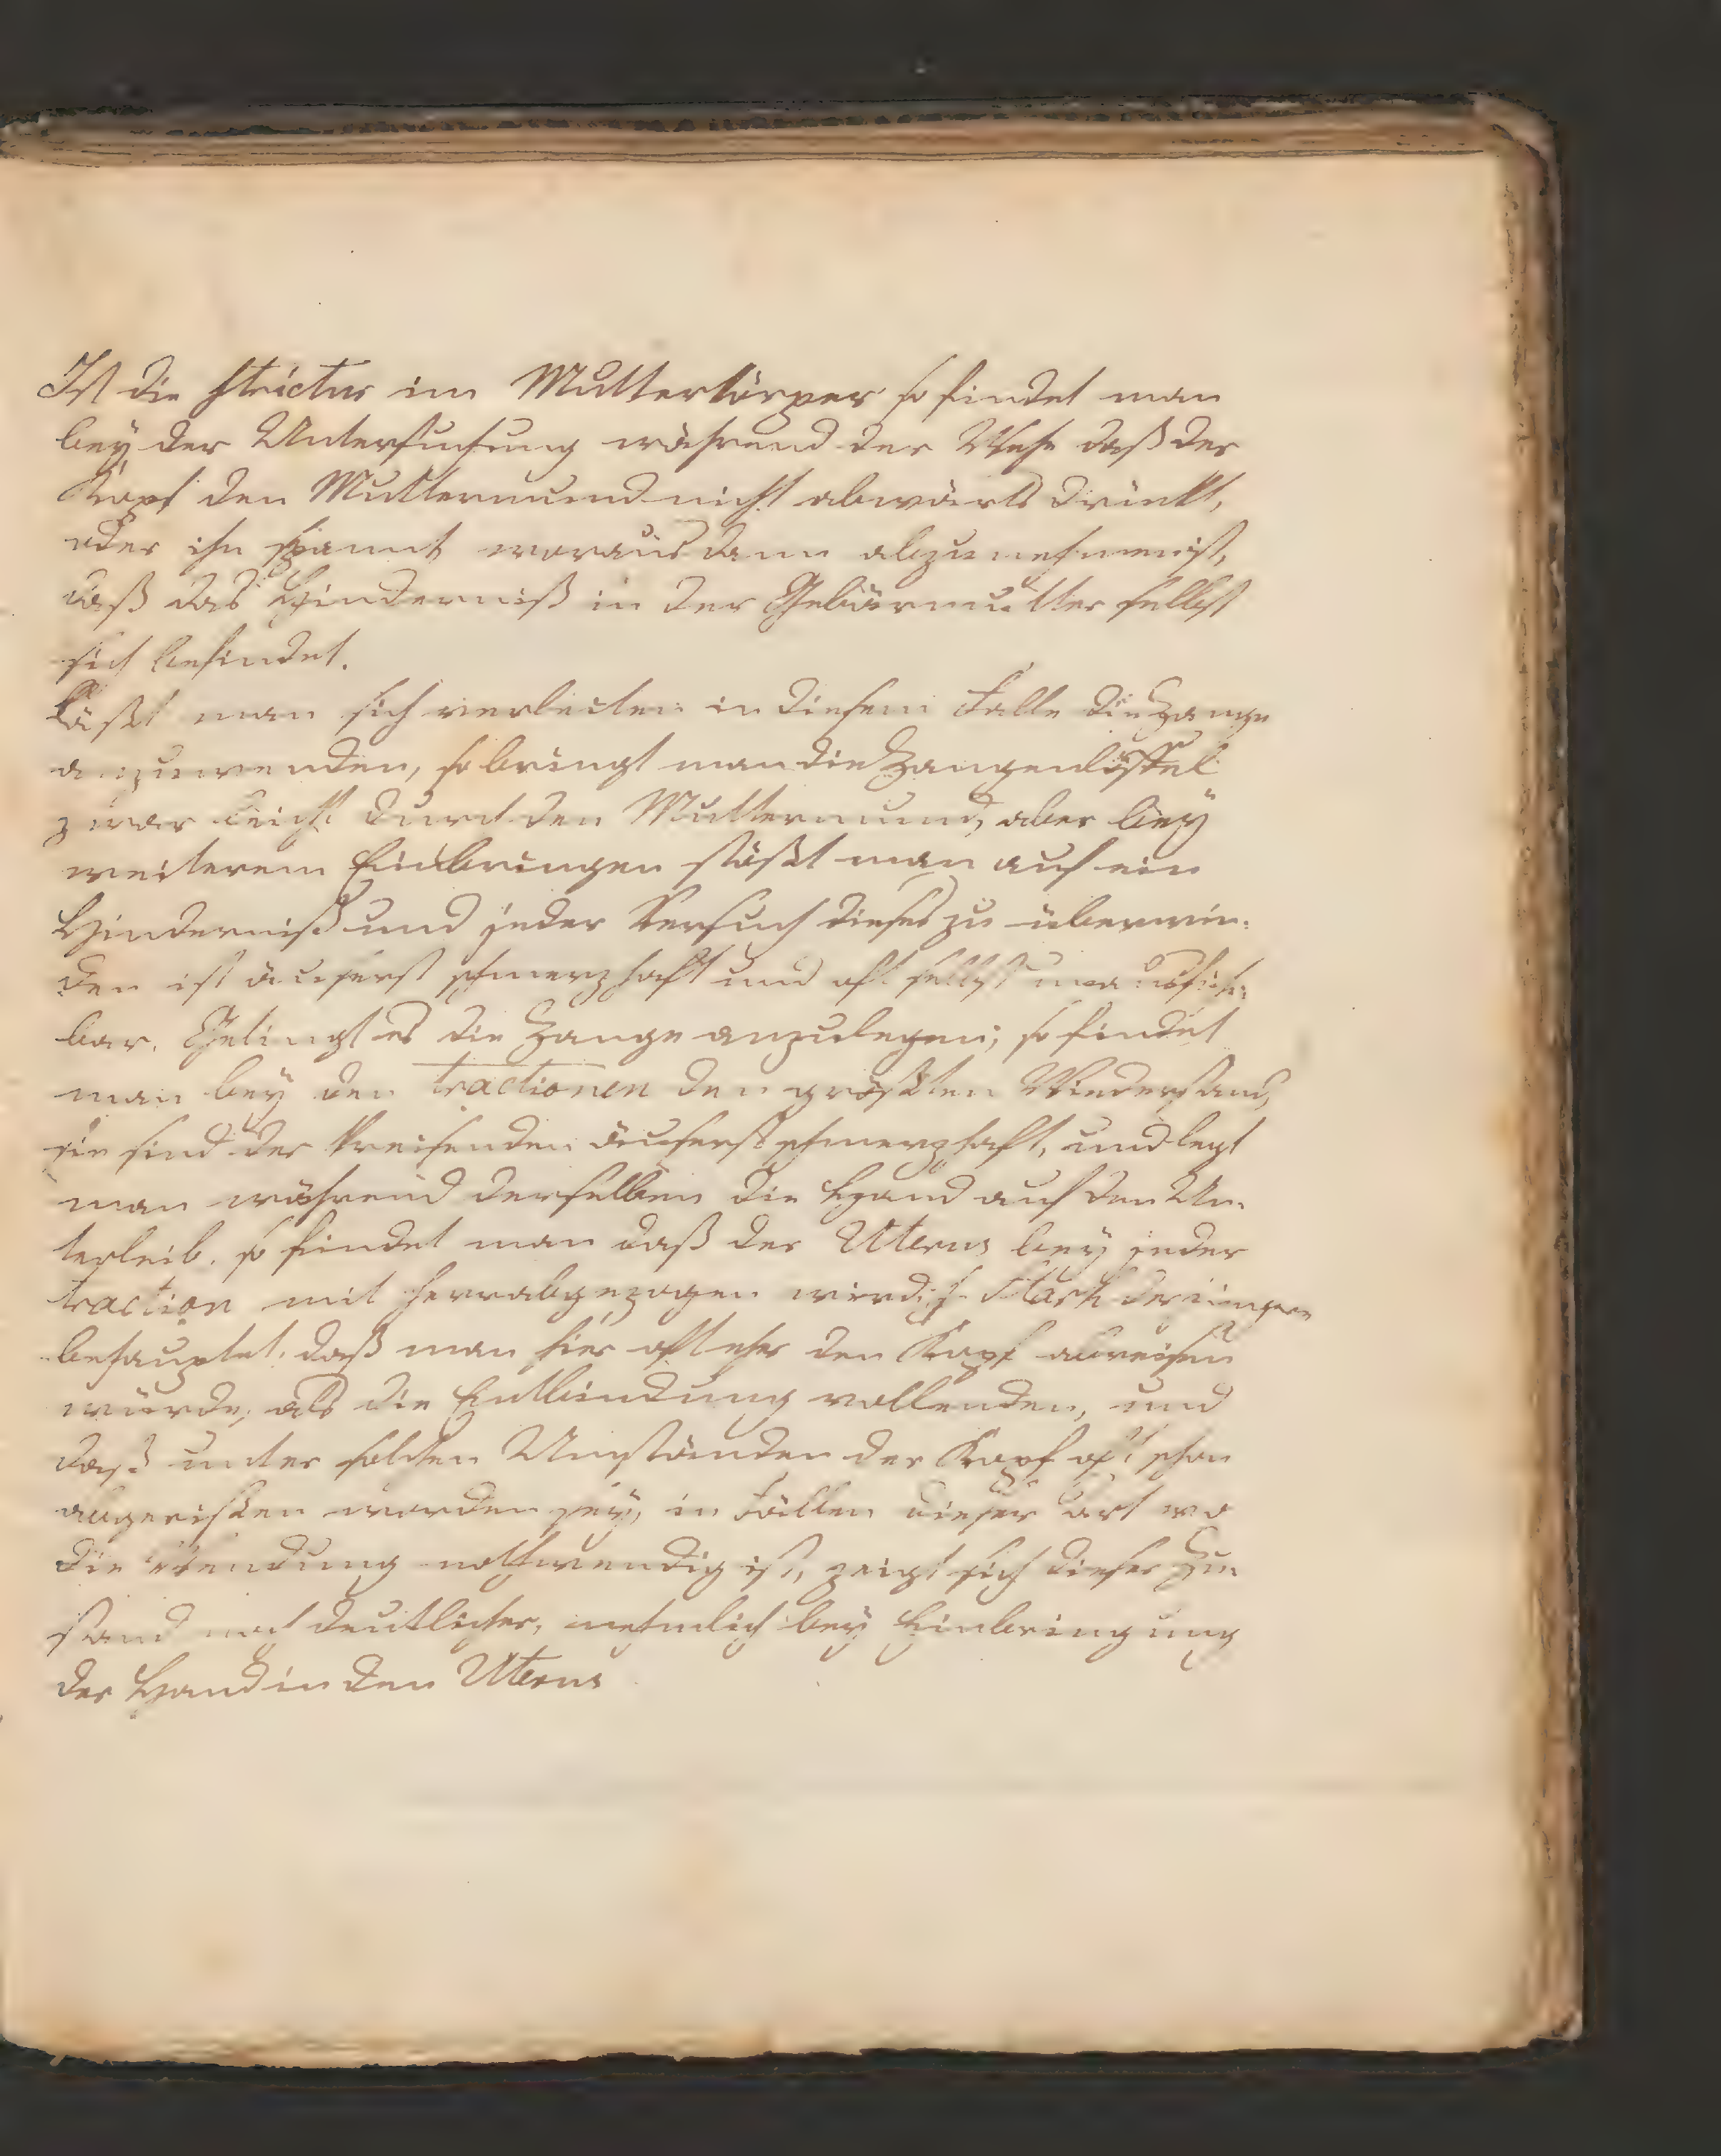 Ist die Strictur im Mutterkörper so findet man
bey der Untersuchung während der Wehe daß der
Kopf den Muttermund nicht abwärts drückt,
oder ihn spannt woraus dann abzunehmen ist,
daß das Hinderniß in der Gebärmutter selbst
sich befindet.
Läßt man sich verleiten in diesem Falle die Zange
anzuwenden, so bringt man die Zangenlöffel
zwar leicht durch den Muttermund, aber bey
weiterem Einbringen stößt man auf ein
Hinderniß und jeder Versuch dieses zu überwin-
den ist äuserst schmerzhaft und oft selbst
bar. Gelingt es die Zange anzulegen; so findet
man bey den tractionen den größten Wiederstand,
sie sind der Kreisenden äuserst schmerzhaft, und legt
man während derselben die Hand auf den Un-
terleib, so findet man daß der Uterus bey jeder
traction mit herrabgezogen wird. Stark der jüngere
behauptet, daß man hier oft eher den Kopf abreisen
würde, als die Entbindung vollenden, und
daß unter solchen Umständen der Kopf oft schon
abgerissen worden sey, in Fällen dieser Art wo
die Wendung nothwendig ist, zeigt sich dieser Zu-
stand noch deutlicher, nehmlich bey Einbringung
der Hand in den Uterus